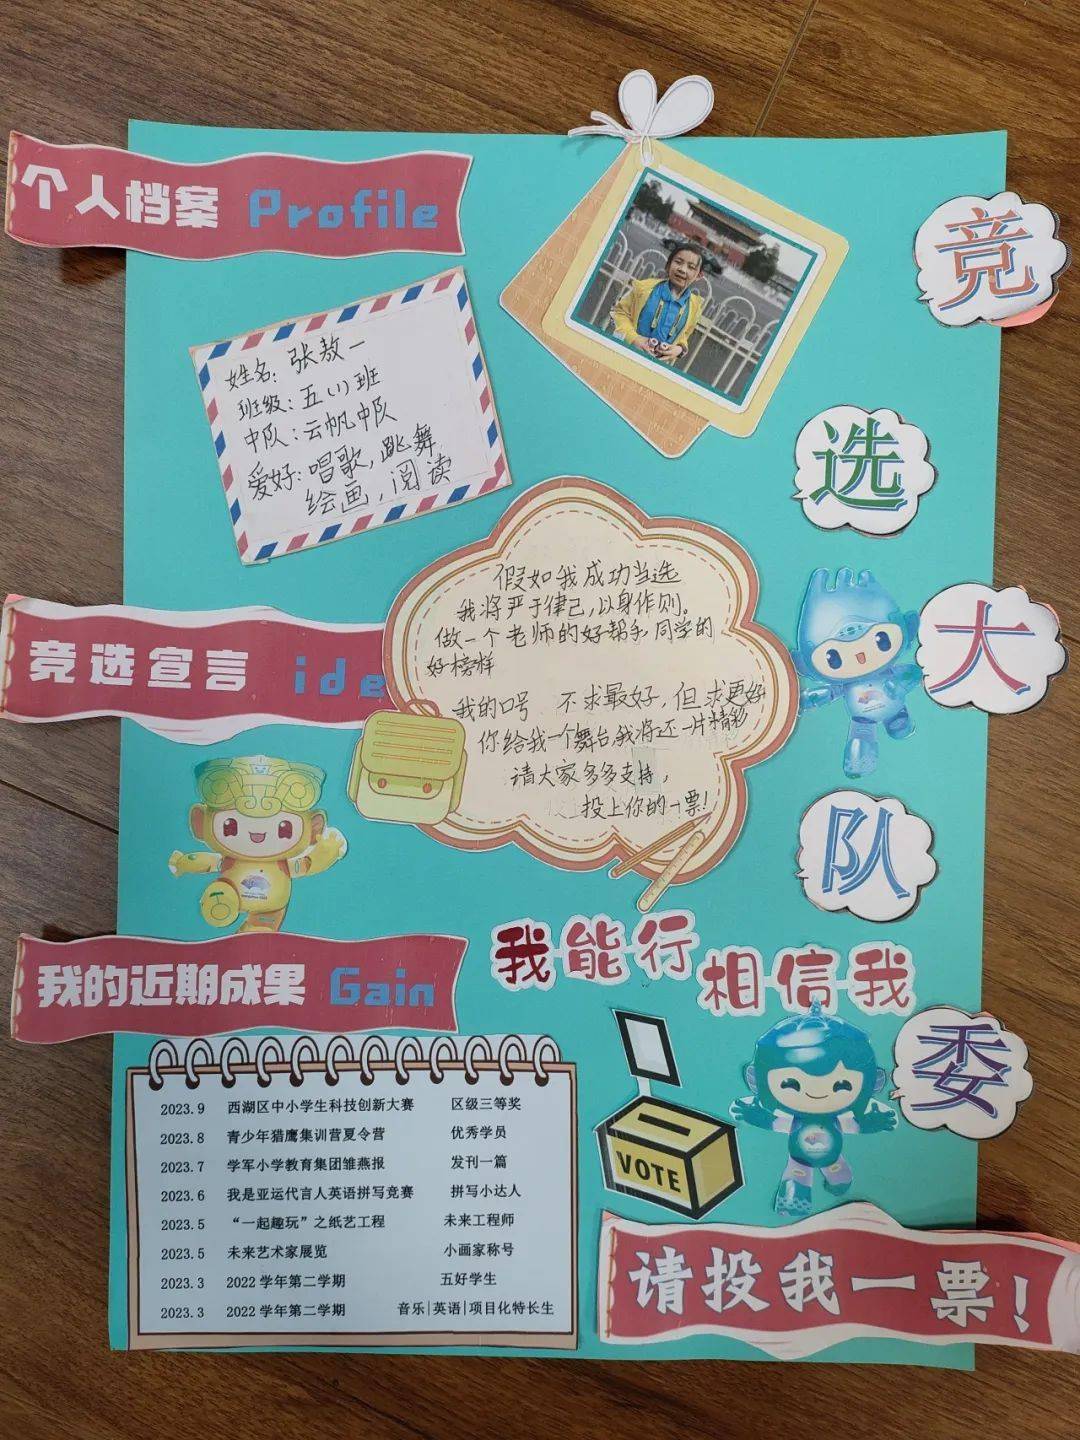 个人档案 Profile
姓名：张敖一
班级：五（1）班
中队：云帆中队
爱好：唱歌，跳舞
绘画，阅读
竞选大队委
竞选宣言 ide
假如我成功当选
我将严于律己，以身作则。
做一个老师的好帮手，同学的
好榜样
我的口号 不求最好，但求更好
你给我一个舞台，我将还一片精彩
请大家多多支持，
投上你的一票！
我的近期成果 Gain
2023.9 西湖区中小学生科技创新大赛 区级三等奖
2023.8 青少年猎鹰集训营夏令营 优秀学员
2023.7 学军小学教育集团雏燕报 发刊一篇
2023.6 我是亚运代言人英语拼写竞赛 拼写小达人
2023.5 “一起趣玩”之纸艺工程 未来工程师
2023.5 未来艺术家展览 小画家称号
2023.3 2022学年第二学期 五好学生
2023.3 2022学年第二学期 音乐|英语|项目化特长生
我能行
相信我
VOTE
请投我一票！